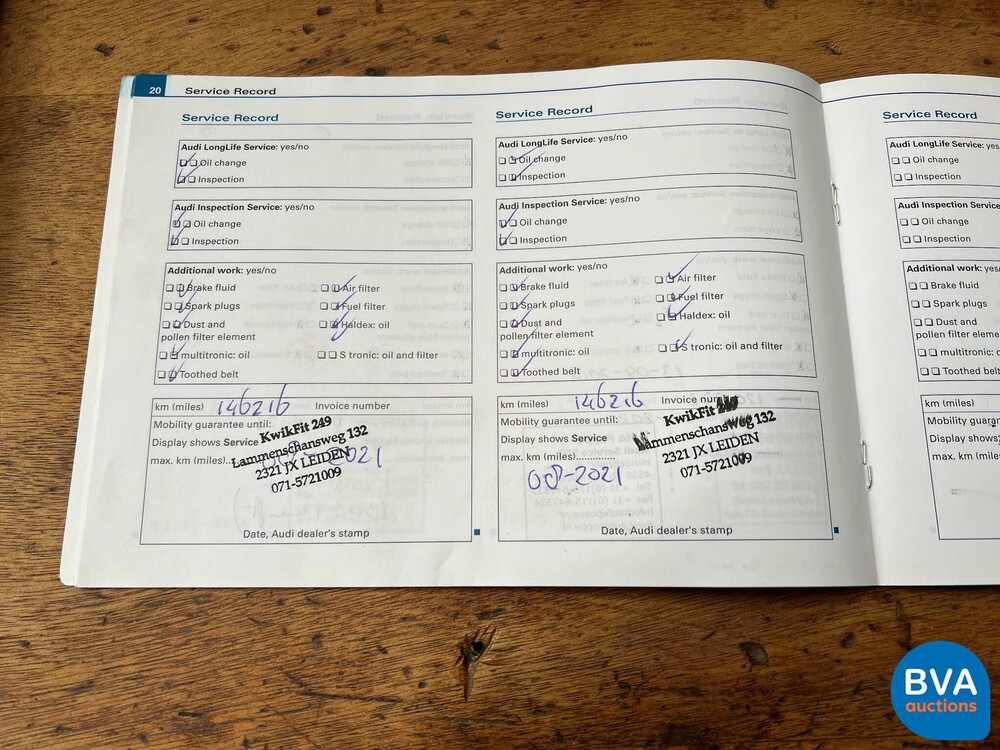 20 Service Record
Service Record
Audi LongLife Service: yes/no
Oil change
Inspection
Audi Inspection Service: yes/no
Oil change
Inspection
Additional work: yes/no
Brake fluid
Air filter
Spark plugs
Fuel filter
Dust and
pollen filter element
Haldex: oil
multitronic: oil
S tronic: oil and filter
Toothed belt
km (miles) 146216 Invoice number
Mobility guarantee until:
Display shows Service
max. km (miles)..
KwikFit 249
Lammenschansweg 132
2321 JX LEIDEN
071-5721009
021
Date, Audi dealer's stamp
Service Record
Audi LongLife Service: yes/no
Oil change
Inspection
Audi Inspection Service: yes/no
Oil change
Inspection
Additional work: yes/no
Brake fluid
Air filter
Spark plugs
Fuel filter
Dust and
pollen filter element
Haldex: oil
multitronic: oil
S tronic: oil and filter
Toothed belt
km (miles) 146216 Invoice
Mobility guarantee until:
Display shows Service
max. km (miles)............
KwikFit 249
Lammenschansweg 132
2321 JX LEIDEN
071-5721009
08-2021
Date, Audi dealer's stamp
Service Record
Audi LongLife Service: yes
Oil change
Inspection
Audi Inspection Service
Oil change
Inspection
Additional work: yes/no
Brake fluid
Spark plugs
Dust and
pollen filter element
multitronic:
Toothed belt
km (miles)
Mobility
Display shows
max. km (miles)
BVA
auctions